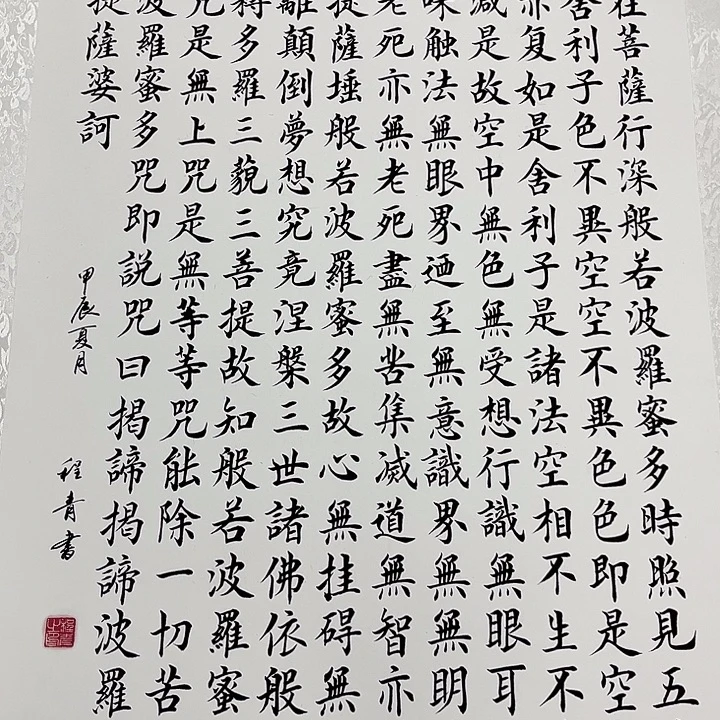 在菩薩行深般若波羅蜜多時照見五
舍利子色不異空空不異色色即是空
亦复如是舍利子是諸法空相不生不
滅是故空中無色無受想行識無眼耳
味触法無眼界迺至無意識界無無明
老死亦無老死盡無苦集滅道無智亦
提薩埵般若波羅蜜多故心無挂碍無
離顛倒夢想究竟涅槃三世諸佛依般
耨多羅三藐三菩提故知般若波羅蜜
咒是無上咒是無等等咒能除一切苦
波羅蜜多咒即説咒曰揭諦揭諦波羅
提薩婆訶
甲辰夏月
程青書